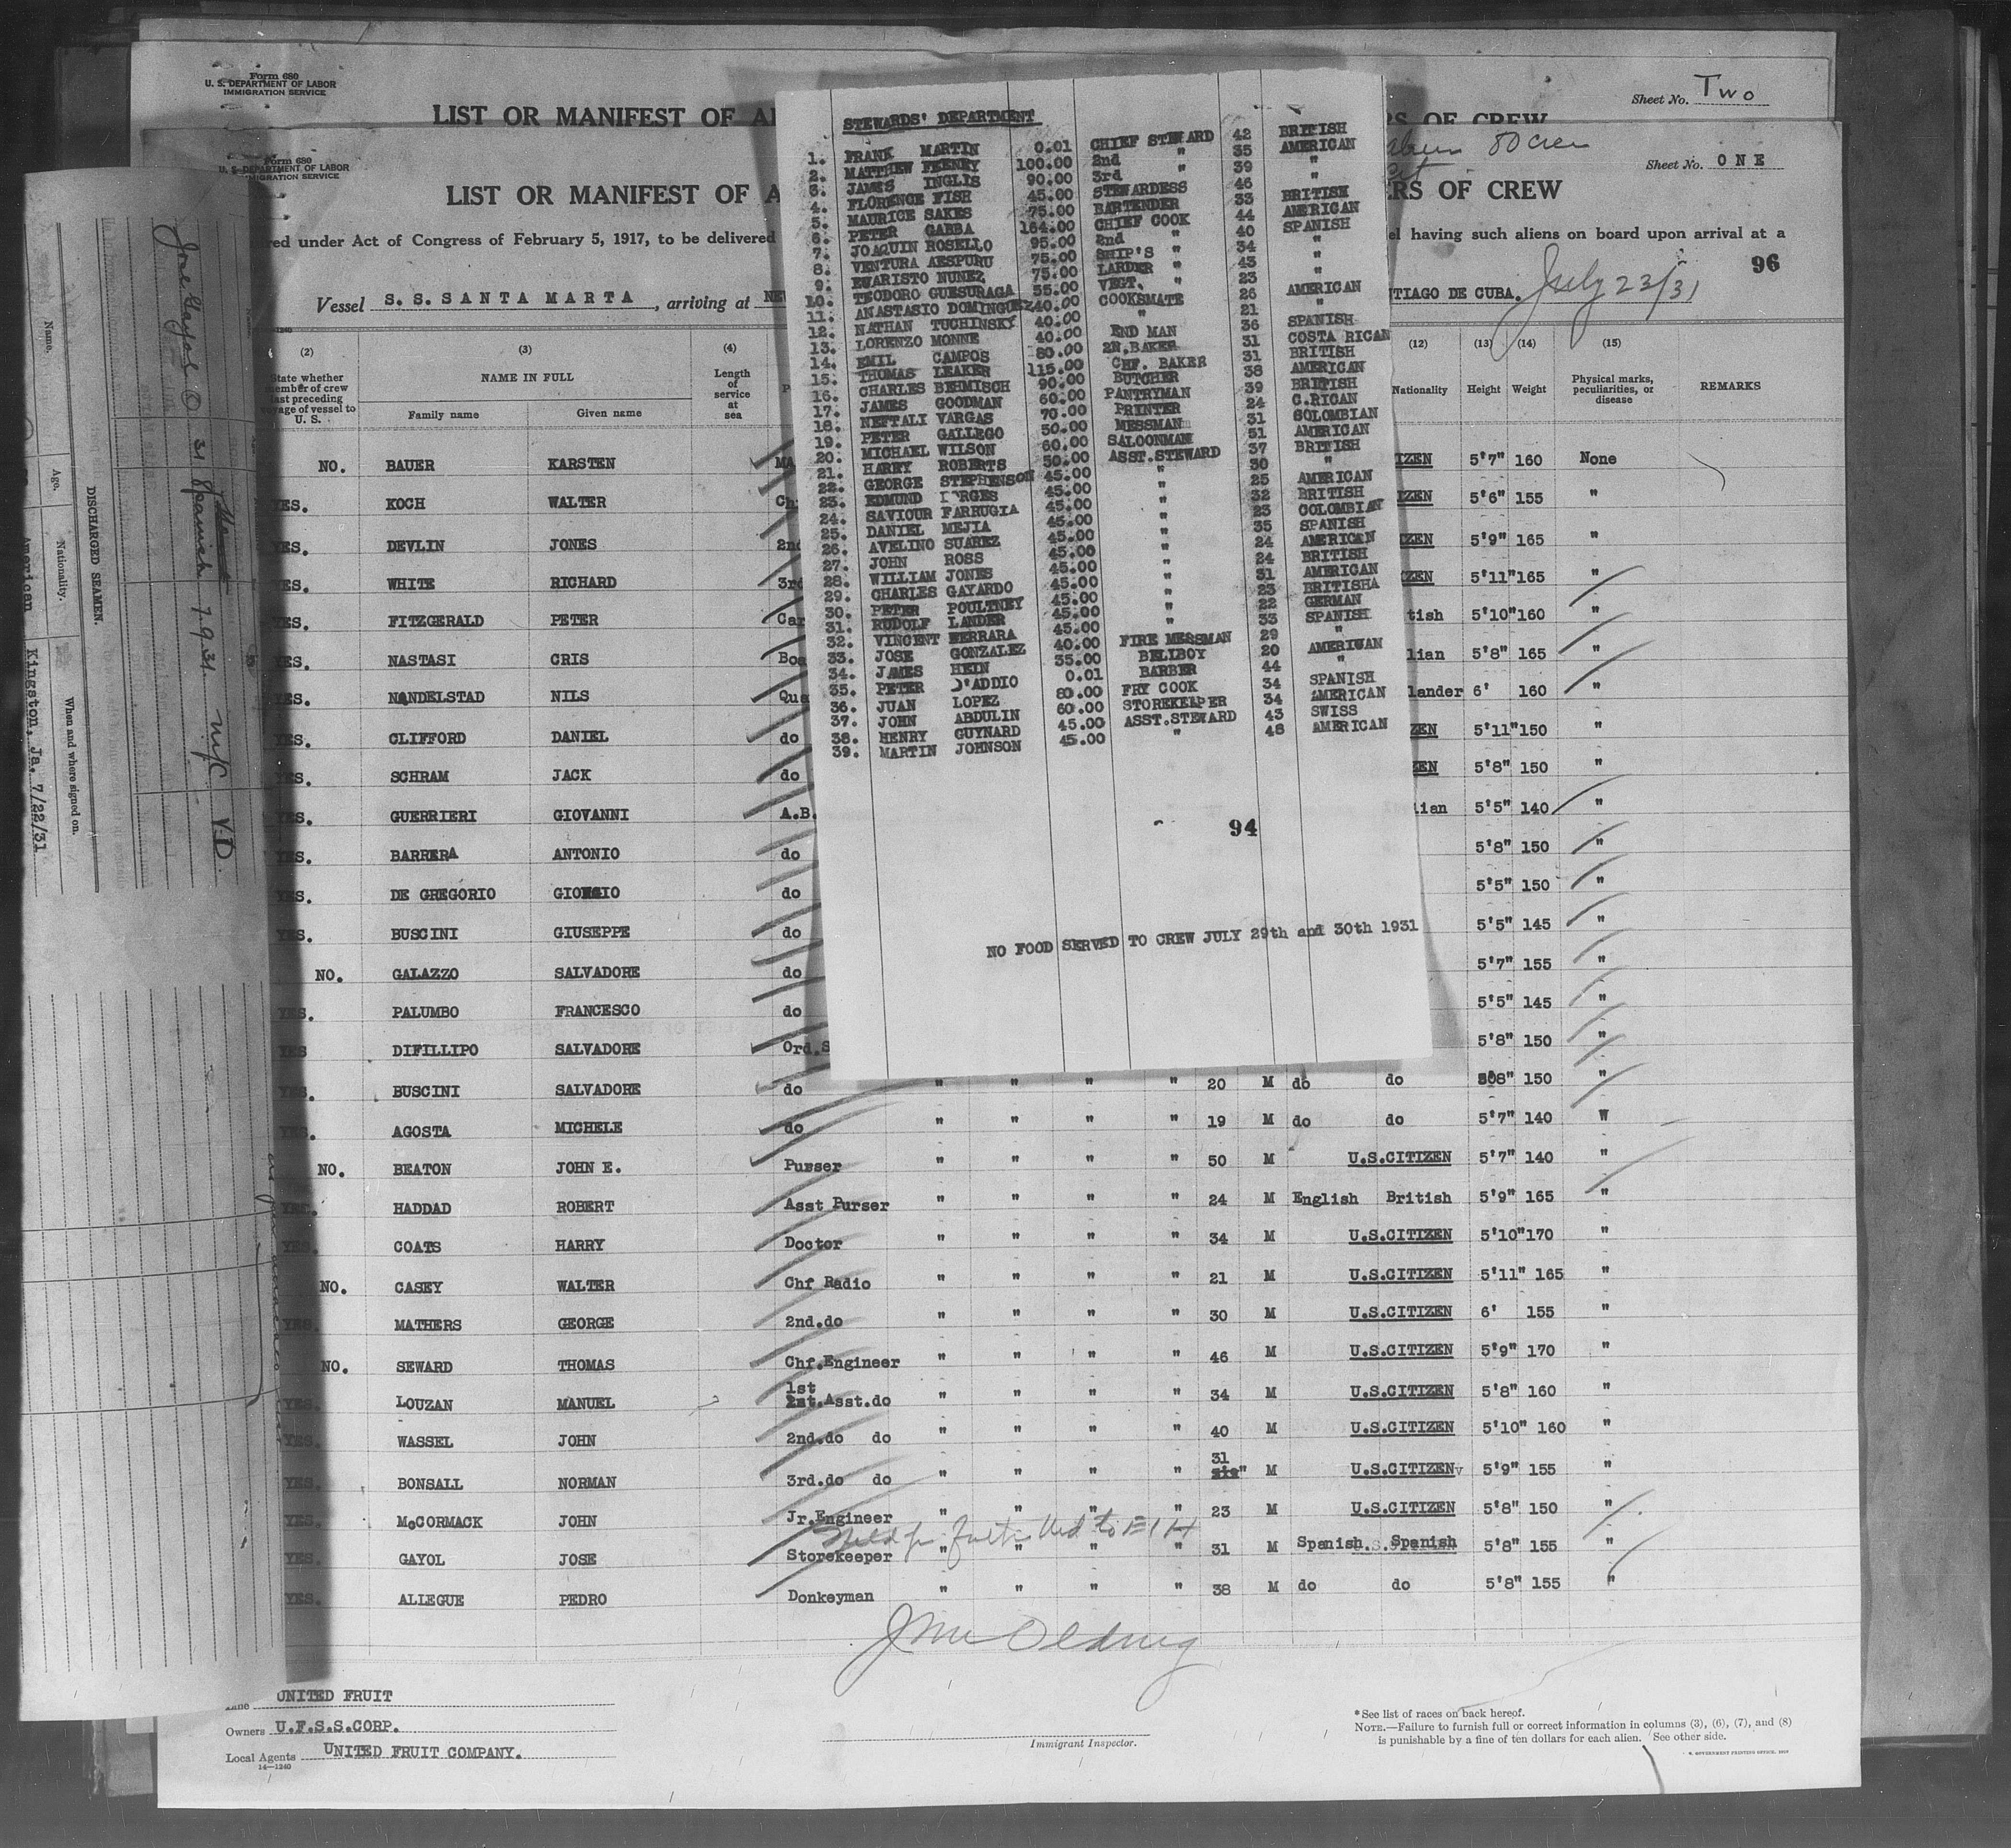 Form 680
U. S. DEPARTMENT OF LABOR
IMMIGRATION SERVICE
Sheet No. Two
LIST OR MANIFEST OF AL
RS OF CREW
Form 680
U. S. DEPARTMENT OF LABOR
IMMIGRATION SERVICE
80 crew
Sheet No. ONE
LIST OR MANIFEST OF A
ERS OF CREW
red under Act of Congress of February 5, 1917, to be delivered
el having such aliens on board upon arrival at a
96
Vessel S. S. SANTA MARTA, arriving at NEW
NTIAGO DE CUBA. July 23/31
STEWARDS' DEPARTMENT
1. FRANK MARTIN 0.01 CHIEF STEWARD 42 BRITISH
2. MATTHEW FEENRY 100.00 2nd " 35 AMERICAN
3. JAMES INGLIS 90.00 3rd " 39 "
4. FLORENCE FISH 45.00 STEWARDESS 46 "
5. MAURICE SAKES 75.00 BARTENDER 33 BRITISH
6. PETER GABBA 164.00 CHIEF COOK 44 AMERICAN
7. JOAQUIN ROSELLO 95.00 2nd " 40 SPANISH
8. VENTURA AESPURU 75.00 SHIP'S " 34 "
9. EVARISTO NUNEZ 75.00 LARDER " 43 "
10. TEODORO GUESURAGA 55.00 VEGT. " 23 "
11. ANASTASIO DOMINGUEZ 40.00 COOKSMATE 26 AMERICAN
12. NATHAN TUCHINSKY 40.00 " 21 "
13. LORENZO MONNE 40.00 END MAN 36 SPANISH
14. EMIL CAMPOS 80.00 2N.BAKER 31 COSTA RICAN
15. THOMAS LEAKER 115.00 CHF. BAKER 31 BRITISH
16. CHARLES BEHMISCH 90.00 BUTCHER 38 AMERICAN
17. JAMES GOODMAN 60.00 PANTRYMAN 39 BRITISH
18. NEFTALI VARGAS 70.00 PRINTER 24 C.RICAN
19. PETER GALLEGO 50.00 MESSMAN 31 COLOMBIAN
20. MICHAEL WILSON 60.00 SALOONMAN 51 AMERICAN
21. HARRY ROBERTS 50.00 ASST.STEWARD 37 BRITISH
22. GEORGE STEPHENSON 45.00 " 30 "
23. EDMUND 45.00 " 25 AMERICAN
24. SAVIOUR FARRUGIA 45.00 " 32 BRITISH
25. DANIEL MEJIA 45.00 " 23 COLOMBIAN
26. AVELINO SUAREZ 45.00 " 35 SPANISH
27. JOHN ROSS 45.00 " 24 AMERICAN
28. WILLIAM JONES 45.00 " 24 BRITISH
29. CHARLES GAYARDO 45.00 " 31 AMERICAN
30. PETER POULTNEY 45.00 " 23 BRITISHA
31. RUDOLF LANDER 45.00 " 22 GERMAN
32. VINCENT HERRARA 45.00 " 33 SPANISH
33. JOSE GONZALEZ 40.00 FIRE MESSMAN 29 "
34. JAMES HEIN 35.00 BELLBOY 20 AMERICAN
35. PETER D'ADDIO 0.01 BARBER 44 "
36. JUAN LOPEZ 80.00 FRY COOK 34 SPANISH
37. JOHN ABDULIN 60.00 STOREKEEPER 34 AMERICAN
38. HENRY GUYNARD 45.00 ASST.STEWARD 43 SWISS
39. MARTIN JOHNSON 45.00 " 48 AMERICAN
94
NO FOOD SERVED TO CREW JULY 29th and 30th 1931
(2) (3) (4) (12) (13) (14) (15)
State whether member of crew last preceding voyage of vessel to U. S.
NAME IN FULL
Family name
Given name
Length of service at sea
Nationality
Height
Weight
Physical marks, peculiarities, or disease
REMARKS
NO. BAUER KARSTEN MA IZEN 5'7" 160 None
YES. KOCH WALTER Ch ZEN 5'6" 155 "
YES. DEVLIN JONES 2nd ZEN 5'9" 165 "
YES. WHITE RICHARD 3rd ZEN 5'11" 165 "
YES. FITZGERALD PETER Car tish 5'10" 160 "
YES. NASTASI CRIS Boa lian 5'8" 165 "
YES. NANDELSTAD NILS Qua lander 6' 160 "
YES. CLIFFORD DANIEL do ZEN 5'11" 150 "
YES. SCHRAM JACK do ZEN 5'8" 150 "
YES. GUERRIERI GIOVANNI A.B. lian 5'5" 140 "
YES. BARRERA ANTONIO do 5'8" 150 "
YES. DE GREGORIO GIORGIO do 5'5" 150 "
YES. BUSCINI GIUSEPPE do 5'5" 145 "
NO. GALAZZO SALVADORE do 5'7" 155 "
YES. PALUMBO FRANCESCO do 5'5" 145 "
YES DIFILLIPO SALVADORE Ord.S 5'8" 150 "
YES. BUSCINI SALVADORE do " " " " 20 M do do 8" 150 "
YES. AGOSTA MICHELE do " " " " 19 M do do 5'7" 140 "
NO. BEATON JOHN E. Purser " " " " 50 M U.S.CITIZEN 5'7" 140 "
YES. HADDAD ROBERT Asst Purser " " " " 24 M English British 5'9" 165 "
YES. COATS HARRY Doctor " " " " 34 M U.S.CITIZEN 5'10" 170 "
NO. CASEY WALTER Chf Radio " " " " 21 M U.S.CITIZEN 5'11" 165 "
YES. MATHERS GEORGE 2nd.do " " " " 30 M U.S.CITIZEN 6' 155 "
NO. SEWARD THOMAS Chf.Engineer " " " " 46 M U.S.CITIZEN 5'9" 170 "
YES. LOUZAN MANUEL 1st Asst.do " " " " 34 M U.S.CITIZEN 5'8" 160 "
YES. WASSEL JOHN 2nd.do do " " " " 40 M U.S.CITIZEN 5'10" 160 "
YES. BONSALL NORMAN 3rd.do do " " " " 31 M U.S.CITIZEN 5'9" 155 "
YES. McCORMACK JOHN Jr.Engineer " " " " 23 M U.S.CITIZEN 5'8" 150 "
YES. GAYOL JOSE Storekeeper " " " " 31 M Spanish Spanish 5'8" 155 "
YES. ALLEGUE PEDRO Donkeyman " " " " 38 M do do 5'8" 155 "
Line UNITED FRUIT
Owners U.F.S.S.CORP.
Local Agents UNITED FRUIT COMPANY.
14—1240
Immigrant Inspector.
*See list of races on back hereof.
NOTE.—Failure to furnish full or correct information in columns (3), (6), (7), and (8)
is punishable by a fine of ten dollars for each alien. See other side.
DISCHARGED SEAMEN.
Name. Age. Nationality. When and where signed on.
American Kingston, Ja. 7/22/31
31 Spanish 7.9.31. V.D.